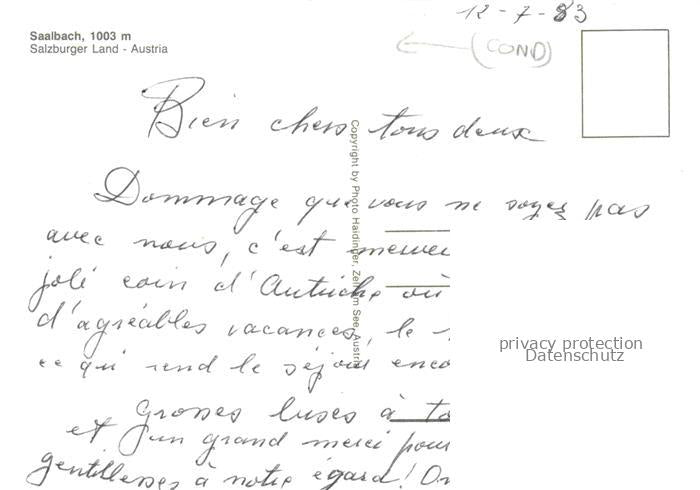 12-7-83
Saalbach, 1003 m
Salzburger Land - Austria
(COND)
Bien chers tous deux
Copyright by Photo Haidinger, Zell am See, Austria
Dommage que vous ne soyez pas
avec nous, c'est mervei
joli coin d'Autriche où
d'agréables vacances, le
ce qui rend le séjour enco
privacy protection
Datenschutz
Grosses bises à to
et un grand merci pour
gentillesses à notre égard! On